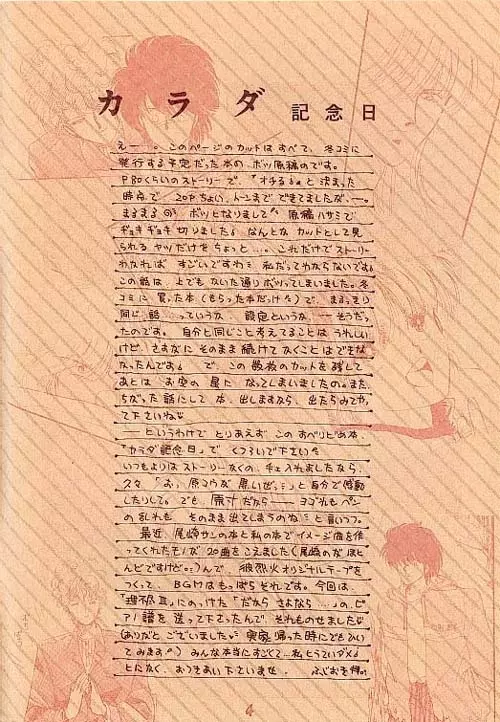 カラダ記念日
えー。このページのカットはすべて、冬コミに
発行する予定だった本の、ボツ原稿のです。
P80くらいのストーリーで、「オチる」と決まった
時点で 20Pちょい、トーンまでできてましたが、―。
まるまる ボツになりまして 原稿ハサミで
ギョキギョキ切りました。なんとか カットとして見
られるヤツだけをちょっと…。これだけでストーリー
わかれば すごいですわ 私だってわからないです。
この話は、上でも かいた通りボツってしまいました。冬
コミに 買った本(もらった本だっけ)で、まるっきり
同じ話 …っていうか、設定というか、―そうだっ
たのです。自分と同じこと考えてることは うれしい
けど、さすがに そのまま続けてかくことはできな
かったんです。で、この数枚のカットを残して
あとは お空の星に なってしまいましたの。また、
ちがった話にして 本、出しますなら、出たらみてやっ
て下さいね
――というわけで とりあえず このすべりどめ本、
「カラダ記念日」で くつろいで下さい
いつもよりは ストーリーなくの、チェ入れましたなら、
久々 「おっ、原コウが 黒いぜ。」と自分で感動
したりして。でも 原汁だから―― ヨゴれもペン
の乱れも そのまま出てしまうのね と言いつつ。
最近、尾崎サンの本と私の本でイメージ曲を作
ってくれたモノが 20曲をこえました(尾崎のが ほと
んどですけど。)んで、 彼烈火オリジナルテープを
つくって、BGMはもっぱら それです。今回は、
にのっけた「だから さよなら …」の、ピ
アノ譜を 送って下さったんで、それものせました
(ありがと ございました 実家 帰った時にでもひい
てみます)みんな本当にすごくて…私とうていダメ。
とにかく、おつきあい下さいませ。
4